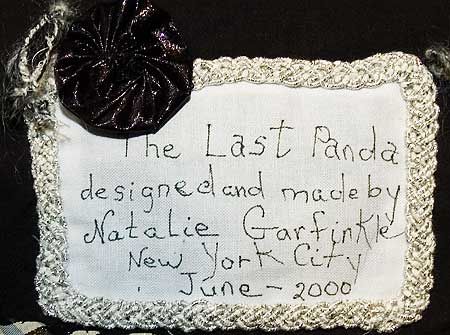 The Last Panda
designed and made by
Natalie Garfinkle
New York City
June - 2000